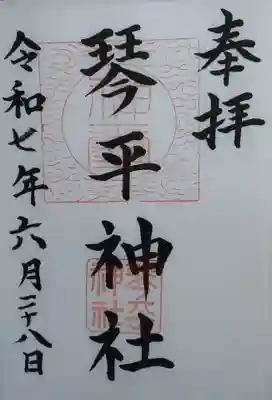 奉拝
琴平神社
令和七年六月二十八日